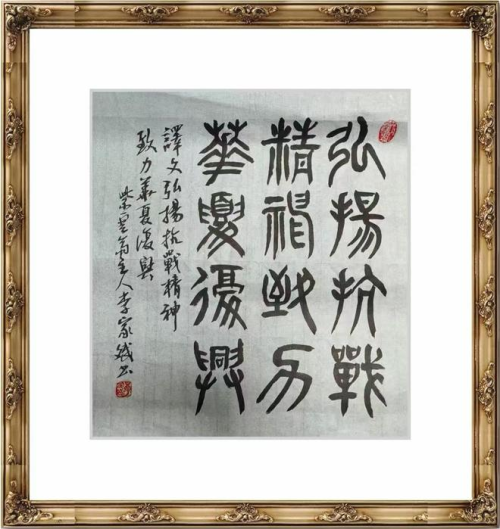 弘揚抗戰
精神致力
華夏復興
譯文弘揚抗戰精神
致力華夏復興
紫雲斋主人李家斌书